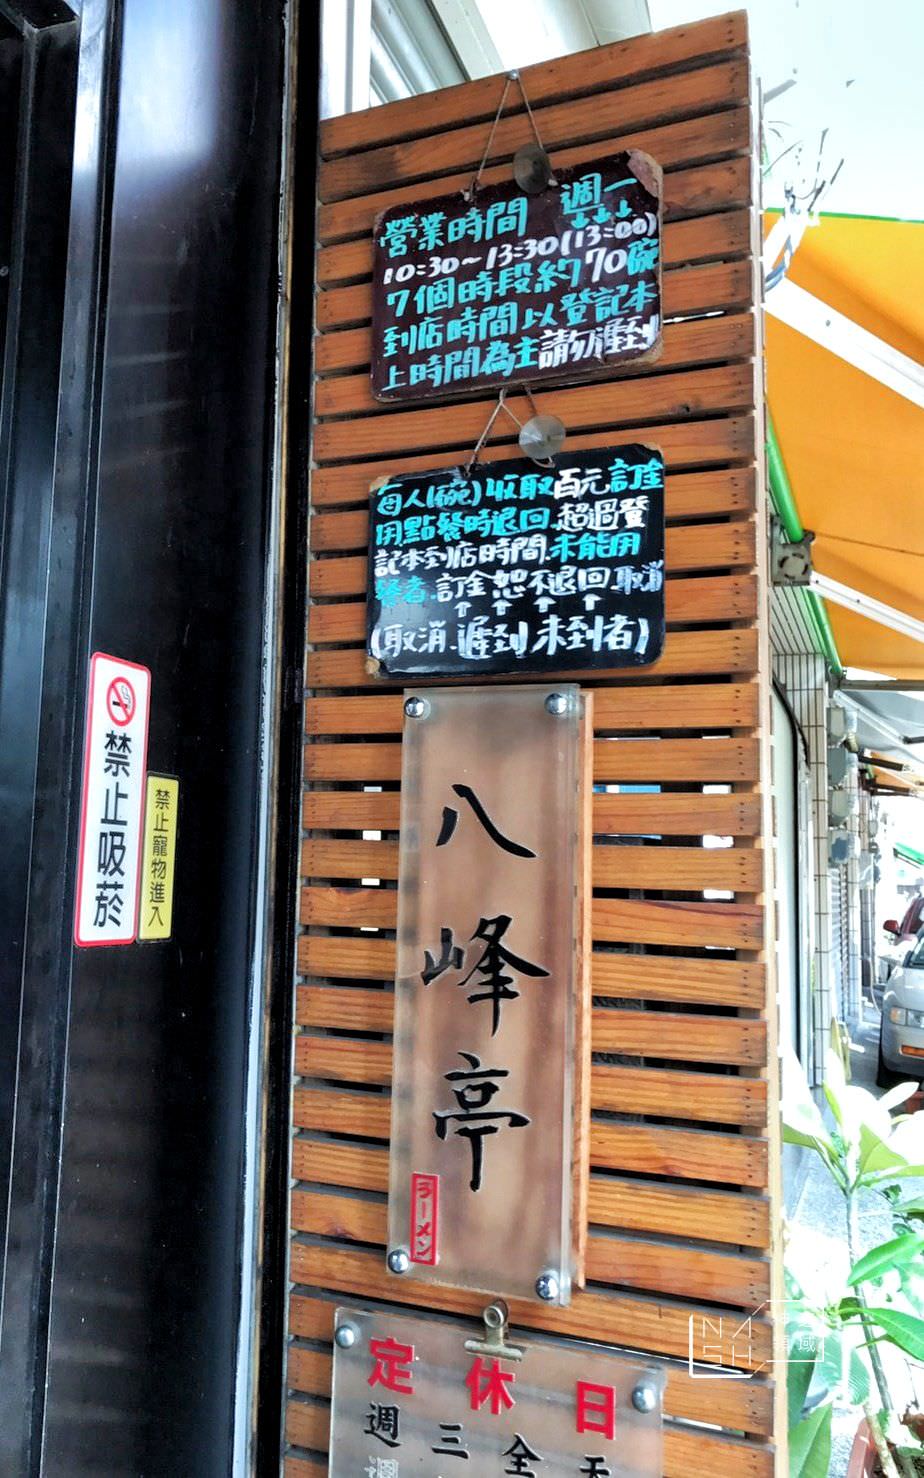 營業時間 週一
↓↓↓
10:30～13:30(13:00)
7個時段約70碗
到店時間以登記本
上時間為主請勿遲到
每人(碗)收取百元訂金
用點餐時退回.超過登
記本到店時間.未能用
餐者.訂金恕不退回取消
↑↑↑↑
(取消.遲到.未到者)
禁止吸菸
禁止寵物進入
八峰亭
ラーメン
定休日
週三全天
NASH
域